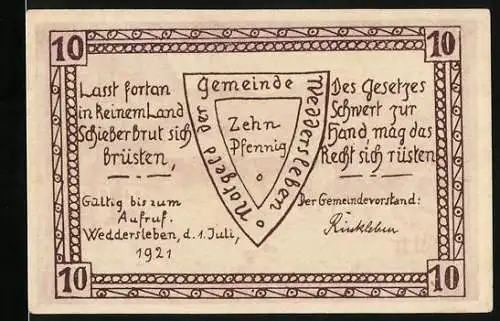 10
10
Lasst fortan
in keinem Land
Schieberbrut sich
brüsten,
Gültig bis zum
Aufruf.
Weddersleben, d. 1. Juli,
1921
Notgeld der Gemeinde Weddersleben
Zehn
Pfennig
Des Gesetzes
Schwert zur
Hand, mag das
Recht sich rüsten.
Der Gemeindevorstand:
Rinkleben
10
10